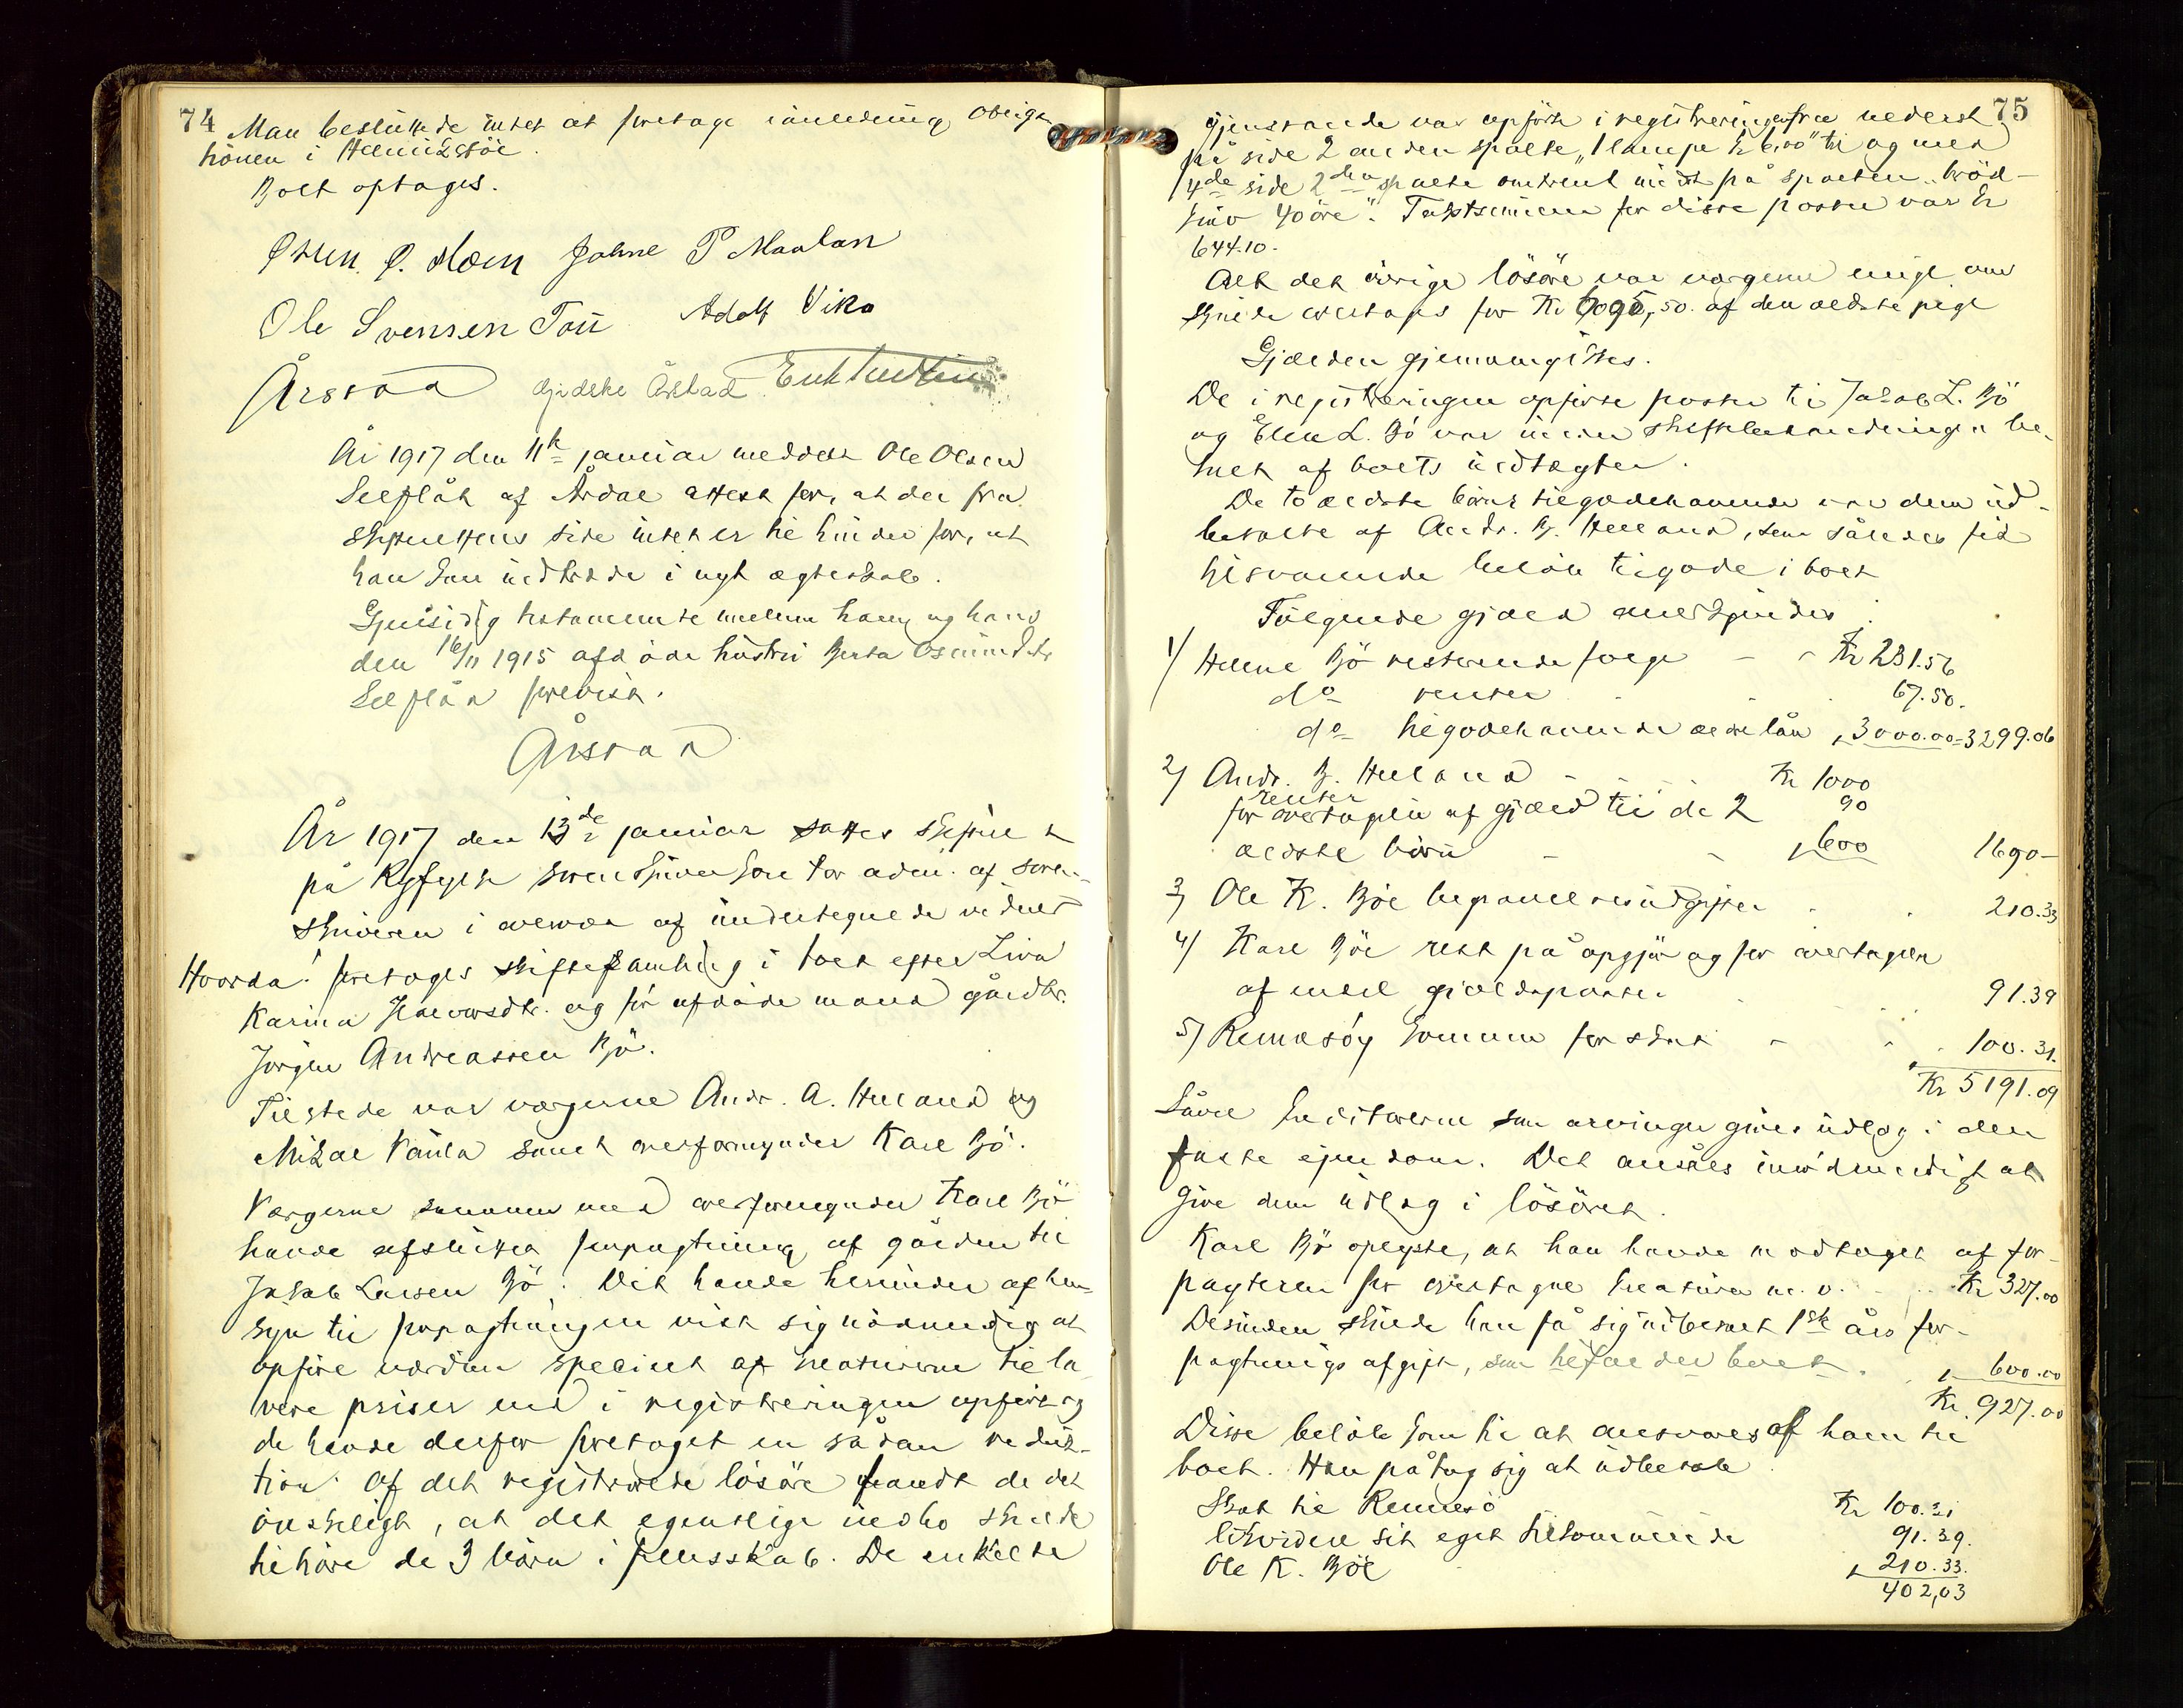 74
Man besluttede intet at foretage i anledning obliga
tionen i
Boet optages.
Osmn. O. Moen Johne P Maalan
Ole Svensen Tou Adolf Vika
Årstad
År 1917 den 11te januar meddelt Ole Olsen
Selflåt af Årdal attest for, at der fra
skifterettens side intet er til hinder for, at
han kan indtræde i nyt ægteskab.
Gjensidig testamente mellem ham og hans
den 16/11 1915 afdøde hustru Berta Osmundsdtr
Selflåt forevist.
Årstad
År 1917 den 13de januar sattes skifteret
på Ryfylke sorenskriverkontor adm. af soren-
skriveren i overvær af undertegnede vidner
Hvorda: foretoges skiftesamling i boet efter Liva
Karina Halvorsdtr. og før afdøde mand gårdbr.
Jørgen Andreassen Bø.
Tilstede var værgerne Andr. A. Helland og
Mikal Vaula samt overformynder Karl Bø.
Værgerne sammen med overformynder Karl Bø
havde afsluttet forpagtning af gården til
Jakob Larsen Bø. Det havde herunder af hen-
syn til forpagtningen vist sig nødvendig at
opføre værdien specielt af kreaturerne til la
vere priser end i registreringen opført og
de havde derfor foretaget en sådan reduk-
tion. Af det registrerede løsøre fandt de det
ønskeligt, at det egentlige indbo skulde
tilhøre de 3 børn i fellesskab. De enkelte
75
gjenstande var opført i registreringen fra nederst
på side 2 anden spalte „1 lampe kr 6,00" til og med
4de side 2den spalte omtrent midt på spalten „brød-
kniv 40 øre". Takstsummen for disse poster var kr
644.10.
Alt det øvrige løsøre var værgerne enige om
skulde overtages for Kr 6095,50. af den ældste pige
Gjælden gjennomgikkes.
De i registreringen opførte poster til Jakob L. Bø
og Elen L. Bø var under skiftebehandlingen be-
talt af boets indtægter.
De to ældste børns tilgodehavende var dem ud-
betalte af Andr. B. Helland, som således fik
tilsvarende beløb tilgode i boet
Følgende gjæld anerkjendes:
1) Helene Bø resterende følge - - Kr 231.56
do renter - - 67.50.
do tilgodehavende ældre lån " 3000.00 - 3299.06
2) Andr. B. Helland - - - Kr 1000
renter 90
for overtagelse af gjæld til de 2
ældste børn - - " 600 1690 -
3) Ole K. Bøe begravelsesudgifter - - 210.33
4) Karl Bøe rest på opgjør og for overtagelse
af endel gjældsposter 91.39
5) Rennesøy kommune for skat - - - 100.31.
Kr 5191.09
Såvel kreditorerne som arvinger gives udlæg i den
faste eiendom. Det ansåes unødvendigt at
give dem udlæg i løsøret.
Karl Bø oplyste, at han havde modtaget af for-
pagteren for overtagne kreaturer m. v. Kr 327.00
Desuden skulde han få sig udbetalt 1ste års for-
pagtningsafgift, som tilfalder boet. " 600.00
Kr. 927.00
Disse beløb kom til at ansvares af ham til
boet. Han påtog sig at udbetale
Skat til Rennesø Kr 100.31
likvidere sit eget tilkommende 91.39.
Ole K. Bøe " 210.33.
402,03